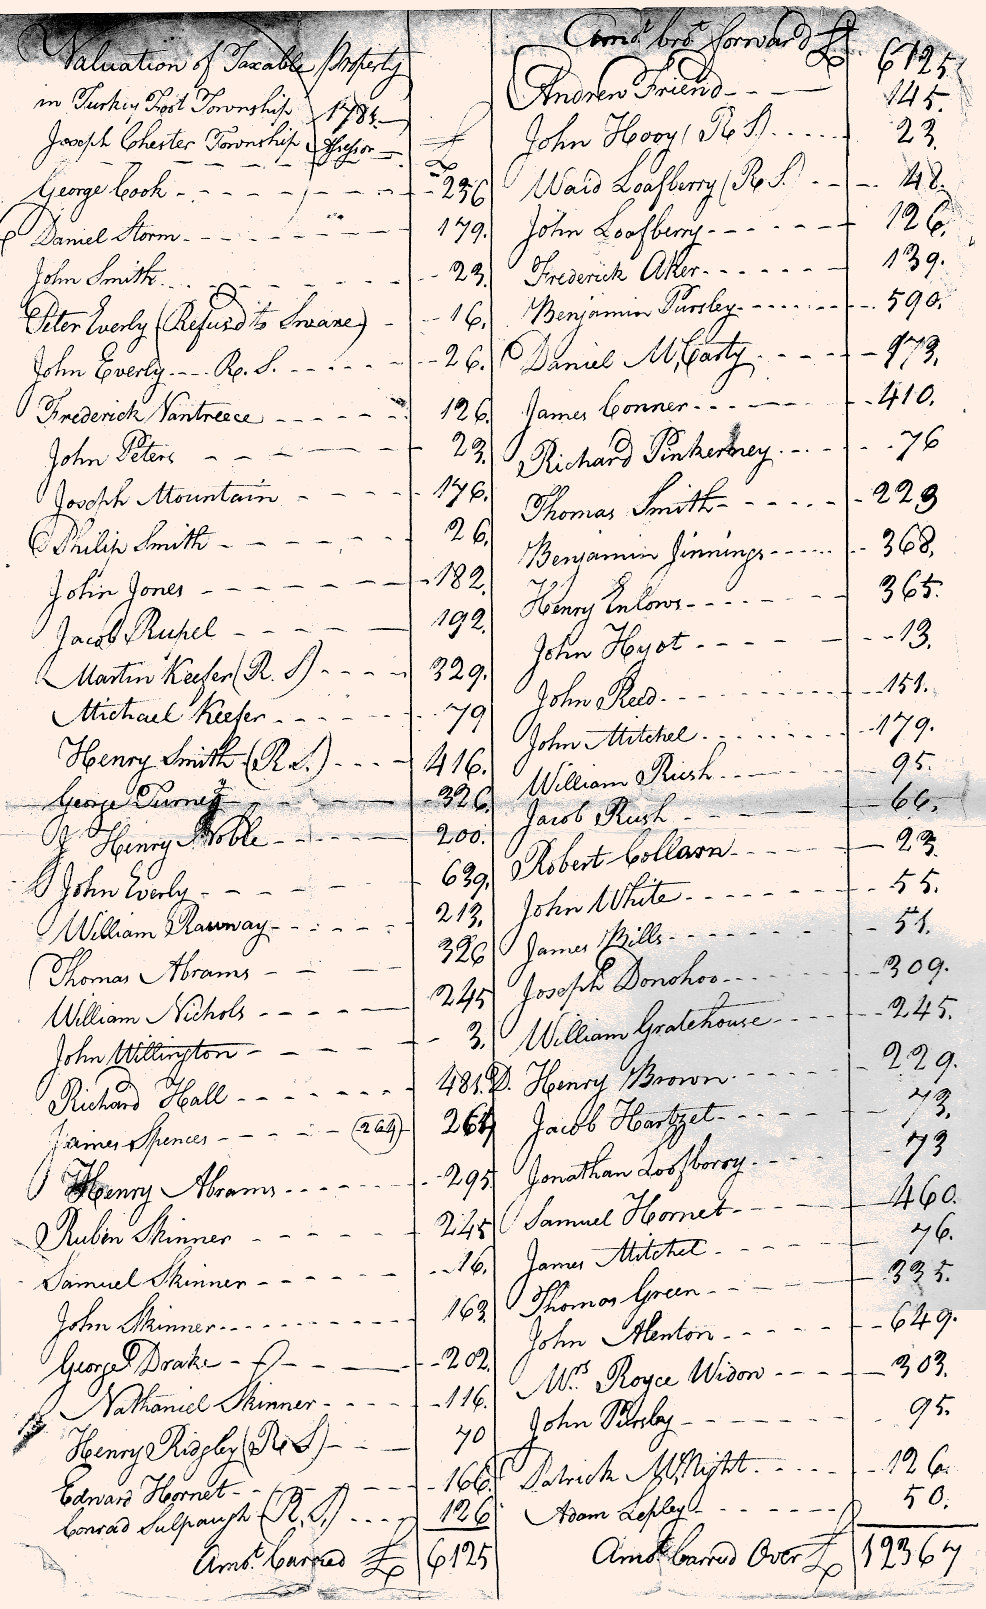 Valuation of Taxable Property
in Turkey Foot Township 1783.
Joseph Chester Township Assessor £
George Cook 236
Daniel Storm 179.
John Smith 23.
Peter Everly (Refusd to Sware) 16.
John Everly R. S. 26.
Frederick Vantreece 126.
John Peters 23.
Joseph Mountain 176.
Philip Smith 26.
John Jones 182.
Jacob Rupel 192.
Martin Keefer (R. S) 329.
Michael Keefer 79
Henry Smith (R S.) 416.
George Turney 326.
Henry Noble 200.
John Everly 639.
William Rawway 213.
Thomas Abrams 326
William Nichols 245
John Willington 3.
Richard Hall 481.
James Spences (264) 264
Henry Abrams 295
Rubin Skinner 245
Samuel Skinner 16.
John Skinner 163
George Drake 202
Nathaniel Skinner 116.
Henry Ridgley (R S) 70
Edward Hornet 166.
Conrad Sulpaugh (R. S.) 126
Amot. Carried £ 6125
Amot. brot. forward £ 6125
Andrew Friend 145.
John Hooy (R S.) 23.
Waid Loafberry (R S.) 48.
John Loafberry 126.
Frederick Aker 139.
Benjamin Pursley 590.
Daniel McCarty 973.
James Conner 410.
Richard Pinkerney 76
Thomas Smith 223
Benjamin Jinnings 368.
Henry Enlows 365.
John Hyot 13.
John Reed 151.
John Mitchel 179.
William Rush 95.
Jacob Rush 66.
Robert Collasn 23.
John White 55.
James Bills 51.
Joseph Donohoo 309.
William Gratehouse 245.
D. Henry Brown 229.
Jacob Hartzet 73.
Jonathan Loofborry 73
Samuel Hornet 460.
James Mitchel 76.
Thomas Green 335.
John Henton 649.
Mrs. Royce Widow 303.
John Pursley 95.
Patrick McNight 126.
Adam Lepley 50.
Amot. Carried Over £ 12367